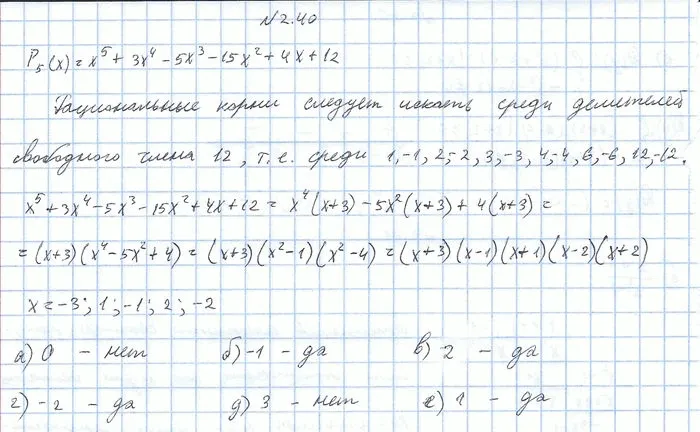 №2.40
P₅(x) = x⁵ + 3x⁴ - 5x³ - 15x² + 4x + 12
Рациональные корни следует искать среди делителей
свободного члена 12, т.е. среди 1,-1, 2,-2, 3,-3, 4,-4, 6,-6, 12,-12.
x⁵ + 3x⁴ - 5x³ - 15x² + 4x + 12 = x⁴(x+3) - 5x²(x+3) + 4(x+3) =
= (x+3)(x⁴ - 5x² + 4) = (x+3)(x² - 1)(x² - 4) = (x+3)(x-1)(x+1)(x-2)(x+2)
x = -3; 1; -1; 2; -2
а) 0 - нет б) -1 - да в) 2 - да
г) -2 - да д) 3 - нет е) 1 - да